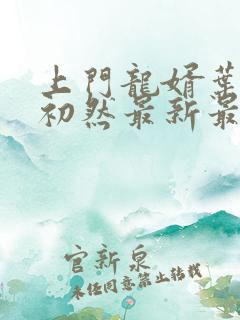 上門龍婿葉
初然最新最
官新泉
未經同意禁止轉載